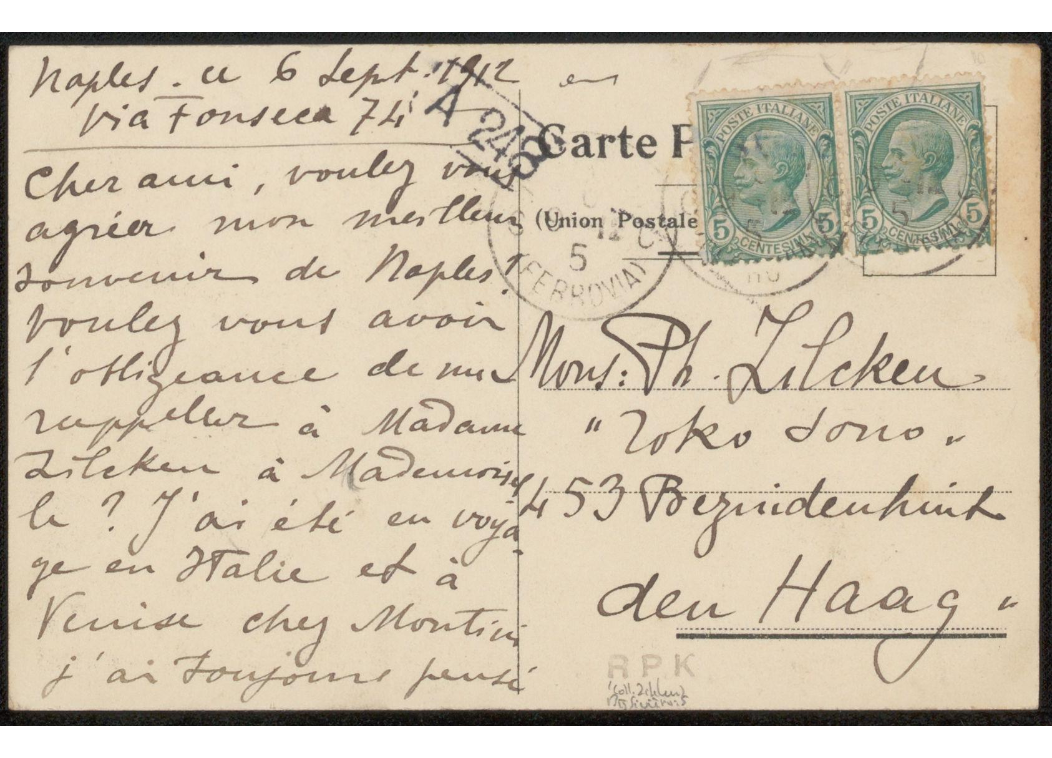 Naples. ce 6 Sept. 1912
Via Fonseca 74
Cher ami, voulez vous
agréer mon meilleur
souvenir de Naples!
Voulez vous avoir
l'obligeance de me
rappeller à Madame
Zilcken à Mademoisel
le? J'ai été en voya
ge en Italie et à
Venise chez Montin
j'ai toujours pensé
en
A 2468
Carte P
(Union Postale
5
(FERROVIA)
POSTE ITALIANE
5 CENTESIMI 5
POSTE ITALIANE
5 CENTESIMI 5
Mons: Ph. Zilcken
"Zoko Sono"
453 Bezuidenhout
den Haag"
RPK